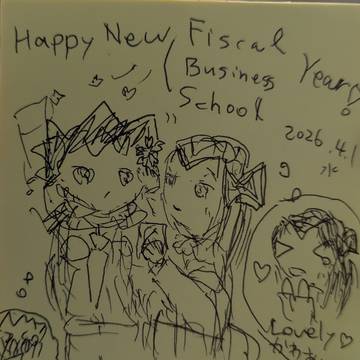 Happy New Fiscal Year!
Business
School
2026.4.1
水
Lovely